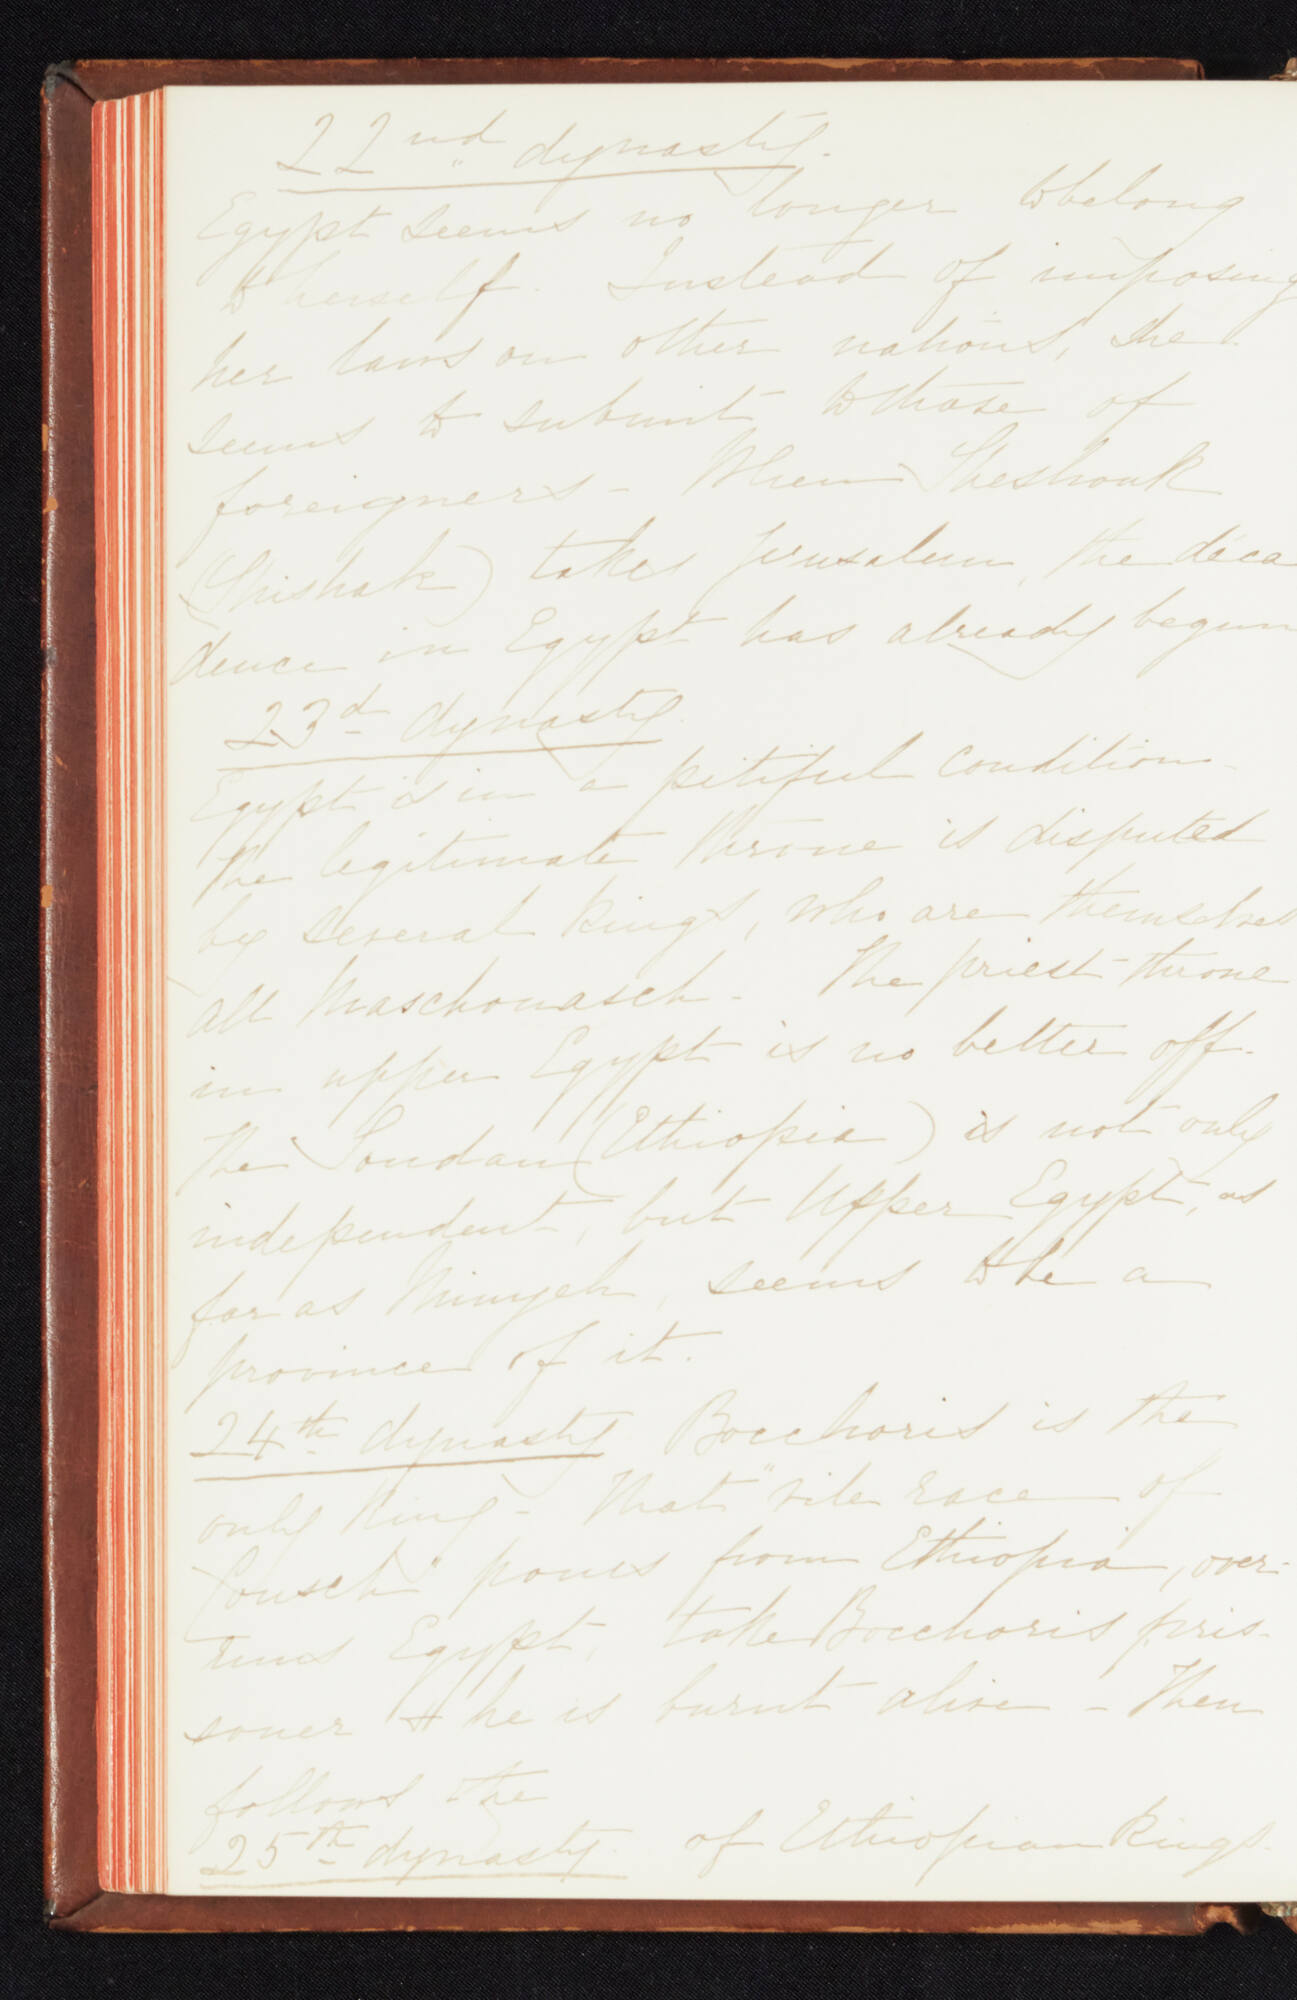 22nd dynasty.
Egypt seems no longer to belong
to herself. Instead of imposing
her laws on other nations, she
seems to submit to those of
foreigners - When Sheshonk
(Shishak) takes Jerusalem, the deca
dence in Egypt has already begun
23d dynasty
Egypt is in a pitiful condition -
The legitimate throne is disputed
by several kings, who are themselves
all Maschouasch - The priest-throne
in upper Egypt is no better off -
The Soudan (Ethiopia) is not only
independent, but Upper Egypt, as
far as Minyeh, seems to be a
province of it.
24th dynasty Bocchoris is the
only King - That "vile race of
Cousch" pours from Ethiopia, over-
runs Egypt, take Bocchoris pris-
soner & he is burnt alive - Then
follows the
25th dynasty of Ethiopian Kings.